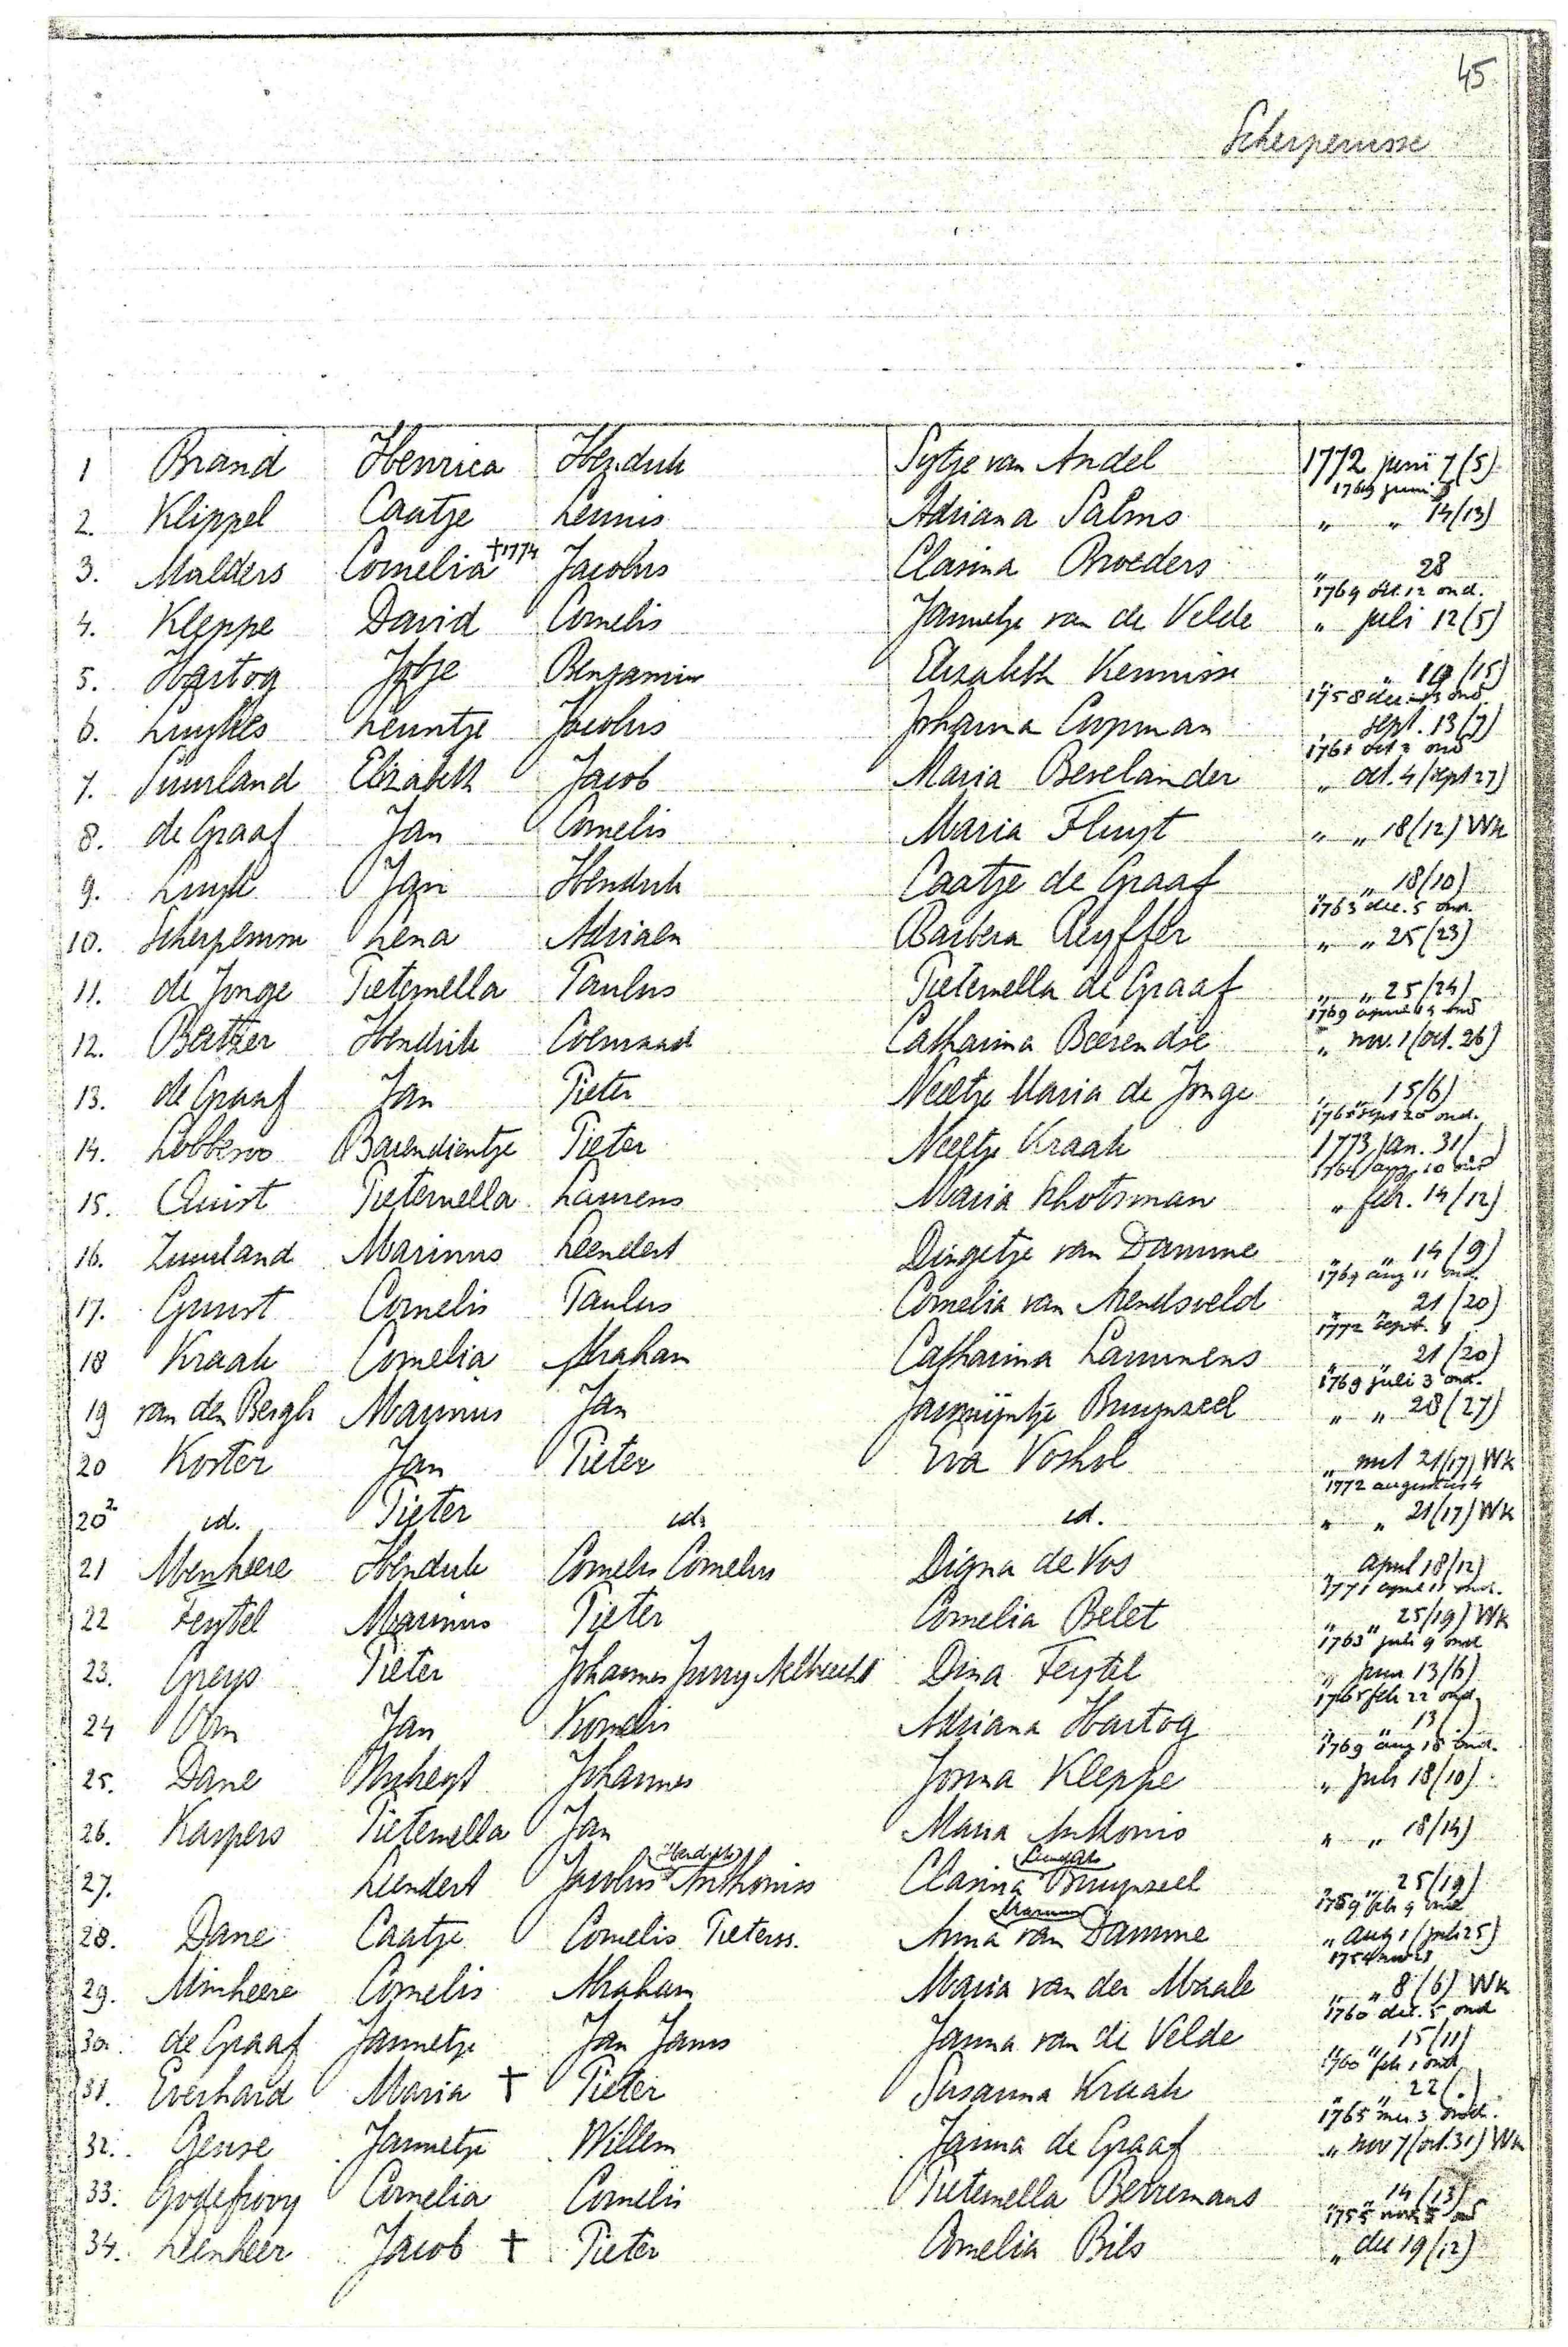 45
Scherpenisse
1 Brand Henrica Hendrik Sytje van Andel 1772 juni 7 (5)
1769 juni
2. Klippel Caatje Leunis Adriana Palms " " 14 (13)
3. Mulders Cornelia †1774 Jacobus Clasina Broeders " 28
1769 oct. 12 ond.
4. Kleppe David Cornelis Jannetje van de Velde " juli 12 (5)
5. Hartog Jobje Benjamin Elizabeth Kennisse " " 19 (15)
1758 dec. 13 ond.
6. Luykes Leuntje Jacobus Johanna Coopman " sept. 13 (7)
1761 oct 2 ond
7. Suurland Elizabeth Jacob Maria Bevelander " oct. 4 (sept 27)
8. de Graaf Jan Cornelis Maria Fluyt " " 18 (12) Wk
9. Luyk Jan Hendrik Caatje de Graaf " " 18 (10)
1763 dec. 5 ond.
10. Scherpenisse Lena Adriaen Barbera Reyffer " " 25 (23)
11. de Jonge Pieternella Paulus Pieternella de Graaf " " 25 (24)
1769 april ond
12. Hendrik Coenraad Catharina Beerendse " nov. 1 (oct. 26)
13. de Graaf Jan Pieter Neeltje Maria de Jonge " " 15 (6)
1765 sept 20 ond.
14. Lobbezoo Barendientje Pieter Neeltje Kraak 1773 jan. 31 ( )
1761 aug. 10 ond
15. Quist Pieternella Laurens Maria Schotsman " feb. 14 (12)
16. Zuurland Marinus Leendert Dingetje van Damme " " 14 (9)
1769 aug 11 ond.
17. Guust Cornelis Paulus Cornelia van Arendsveld " " 21 (20)
1772 sept. 8
18 Kraak Cornelia Abraham Catharina Lammens " " 21 (20)
1769 juli 3 ond.
19 van den Bergh Marinus Jan Bruynzeel " " 28 (27)
20 Koster Jan Pieter Eva Voshol " mrt 21 (17) Wk
1772 augustus 4
20² id. Pieter id. id. " " 21 (17) Wk
21 Menheere Hendrik Cornelis Cornelis Digna de Vos " april 18 (12)
1771 april 11 ond.
22 Feytel Marinus Pieter Cornelia Belet " " 25 (19) Wk
1763 juli 9 ond
23. Greys Pieter Johannes Jurry Aelbrecht Dina Feytel " juni 13 (6)
1765 feb 22 ond.
24 Jan Kornelis Adriana Hartog " " 13 ( )
1769 aug 18 ond.
25. Dane Johannes Josina Kleppe " juli 18 (10)
26. Kaspers Pieternella Jan Maria Anthonis " " 18 (14)
27. Leendert Jacobus Hendrik Anthoniss Clasina Bruynzeel " " 25 (19)
1759 feb 9 ond
28. Dane Caatje Cornelis Pieterss. Anna Marinus van Damme " aug 1 (juli 25)
29. Minheere Cornelis Abraham Maria van der Maale " " 8 (6) Wk
1760 dec. 5 ond
30. de Graaf Jannetje Jan Janss Janna van de Velde " " 15 (11)
1760 feb 1 ond
31. Everhard Maria † Pieter Susanna Kraak " " 22 (.)
1765 mei 3 ond.
32. Geuse Jannetje Willem Janna de Graaf " nov 7 (oct. 31) Wk
33. Godefrooy Cornelia Cornelis Pieternella Berremans " " 14 (13)
34. Leenheer Jacob † Pieter Cornelia Bils " dec 19 (12)